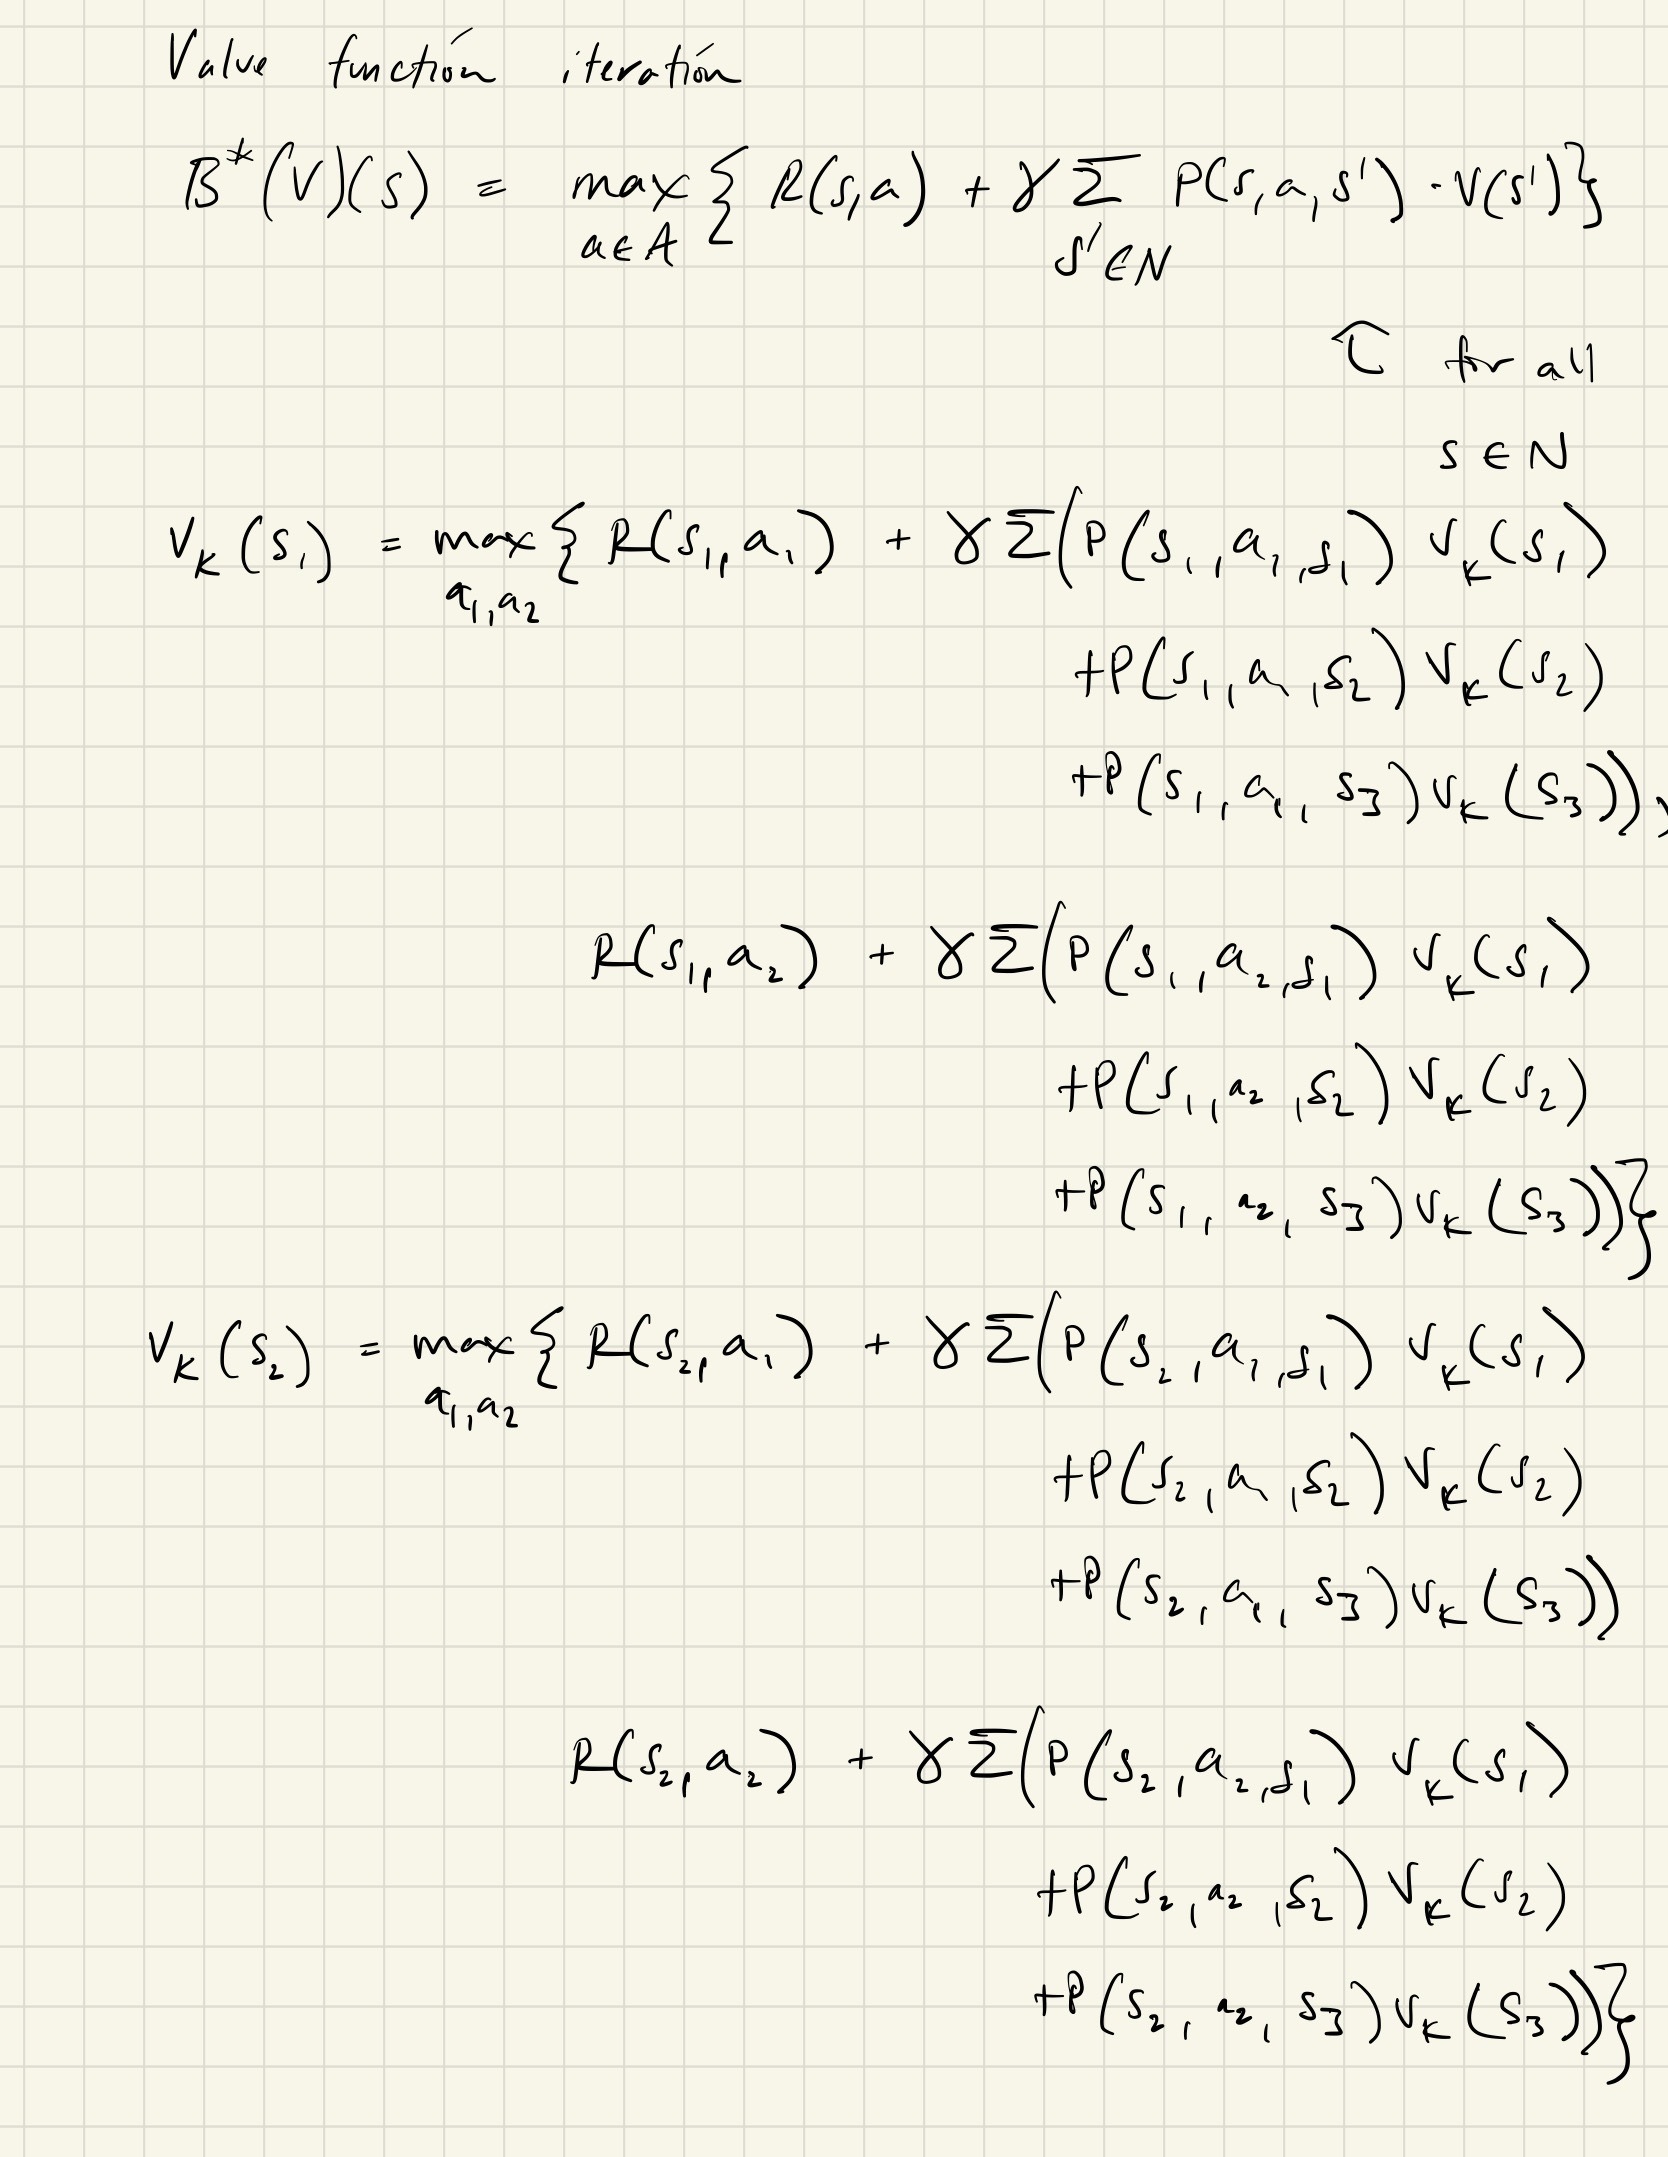 Value function iteration
B*(V)(s) = max { R(s,a) + γ Σ P(s,a,s') · V(s')}
a∈A s'∈N
for all
s ∈ N
V_K(s₁) = max { R(s₁,a₁) + γ Σ(P(s₁,a₁,s₁) V_K(s₁)
a₁,a₂
+P(s₁,a₁,s₂) V_K(s₂)
+P(s₁,a₁,s₃) V_K(s₃)),
R(s₁,a₂) + γ Σ(P(s₁,a₂,s₁) V_K(s₁)
+P(s₁,a₂,s₂) V_K(s₂)
+P(s₁,a₂,s₃) V_K(s₃))}
V_K(s₂) = max { R(s₂,a₁) + γ Σ(P(s₂,a₁,s₁) V_K(s₁)
a₁,a₂
+P(s₂,a₁,s₂) V_K(s₂)
+P(s₂,a₁,s₃) V_K(s₃))
R(s₂,a₂) + γ Σ(P(s₂,a₂,s₁) V_K(s₁)
+P(s₂,a₂,s₂) V_K(s₂)
+P(s₂,a₂,s₃) V_K(s₃))}